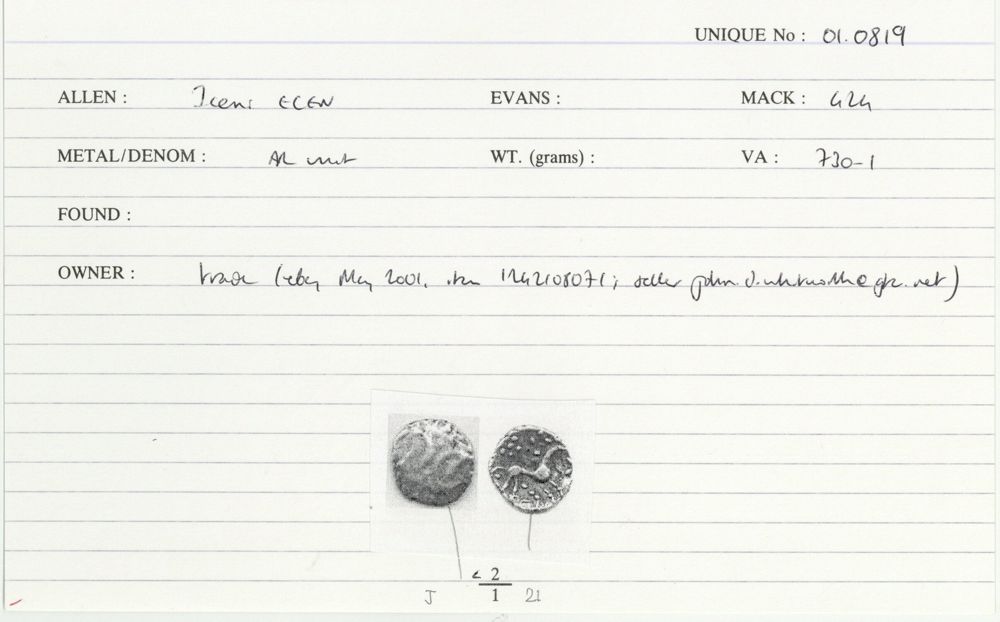 UNIQUE No : 01.0819
ALLEN : Iceni ECEN EVANS : MACK : 424
METAL/DENOM : AR unit WT. (grams) : VA : 730-1
FOUND :
OWNER : trade (ebay May 2001, item 1142108071; seller
c 2
J 1 21